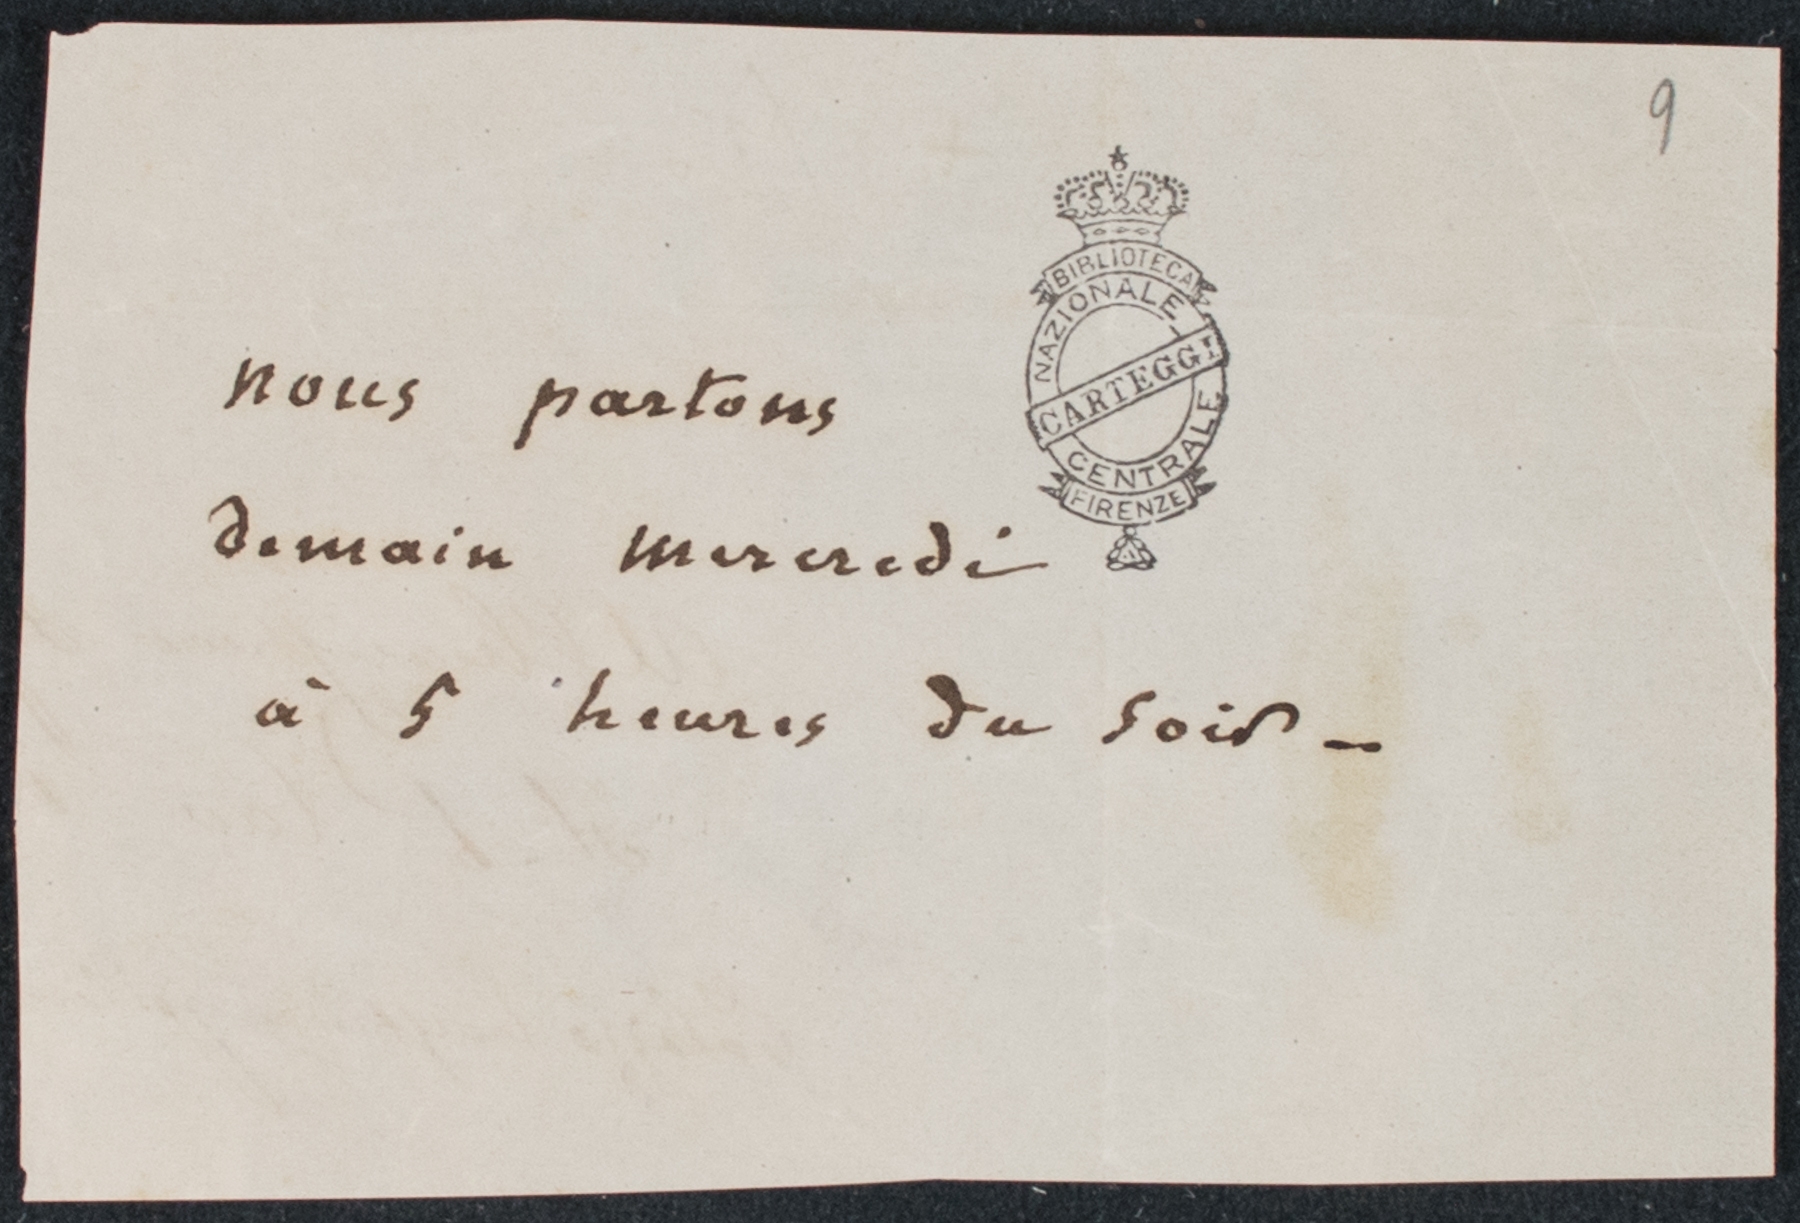 9
BIBLIOTECA
NAZIONALE
CARTEGGI
CENTRALE
FIRENZE
nous partons
demain mercredi
à 5 heures du soir _